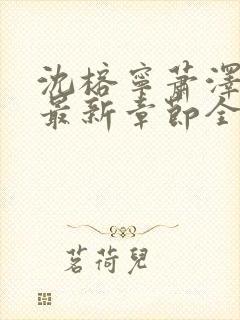 沈榕寧蕭澤
最新章節全
茗荷兒